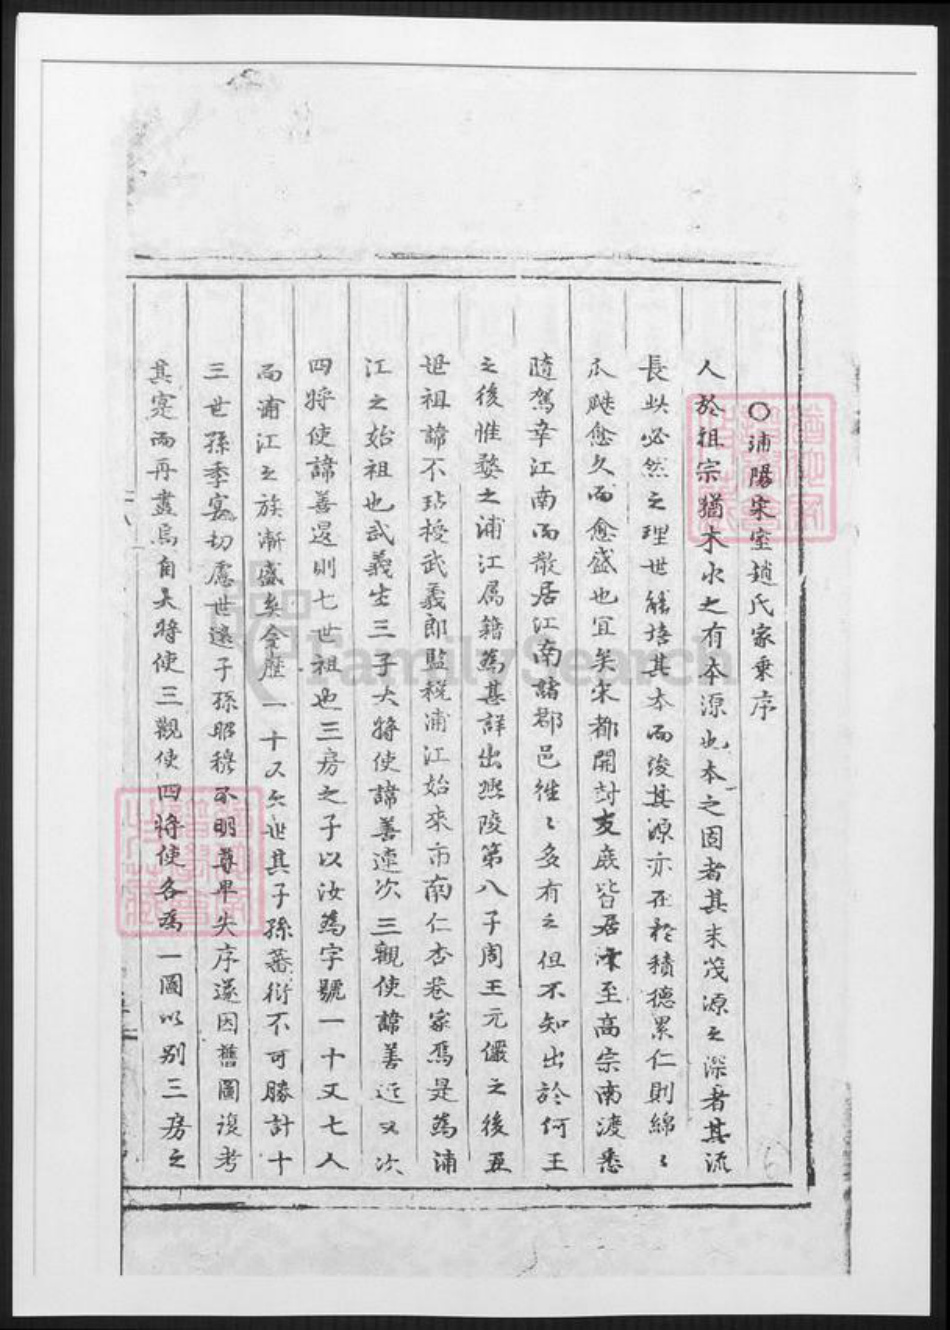 〇浦陽宋室趙氏家乘序
人於祖宗猶木水之有本源也本之固者其末茂源之深者其流
長此必然之理世能培其本而浚其源亦在於積德累仁則綿〻
瓜瓞愈久而愈盛也宜矣宋都開封支庶皆居汴至高宗南渡悉
隨駕幸江南而散居江南諸郡邑徃〻多有之但不知出於何王
之後惟婺之浦江属籍為甚詳出熙陵第八子周王元儼之後五
世祖諱不玷授武義郎監稅浦江始來市南仁杏巷家焉是為浦
江之始祖也武義生三子大將使諱善連次三觀使諱善近又次
四將使諱善還則七世祖也三房之子以汝為字號一十又七人
而浦江之族漸盛矣今歷一十又六世其子孫蕃衍不可勝計十
三世孫季 切慮世遠子孫昭穆不明尊卑失序遂因舊圖復考
其寔而再畫焉自大將使三觀使四將使各為一圖以别三房之
FamilySearch